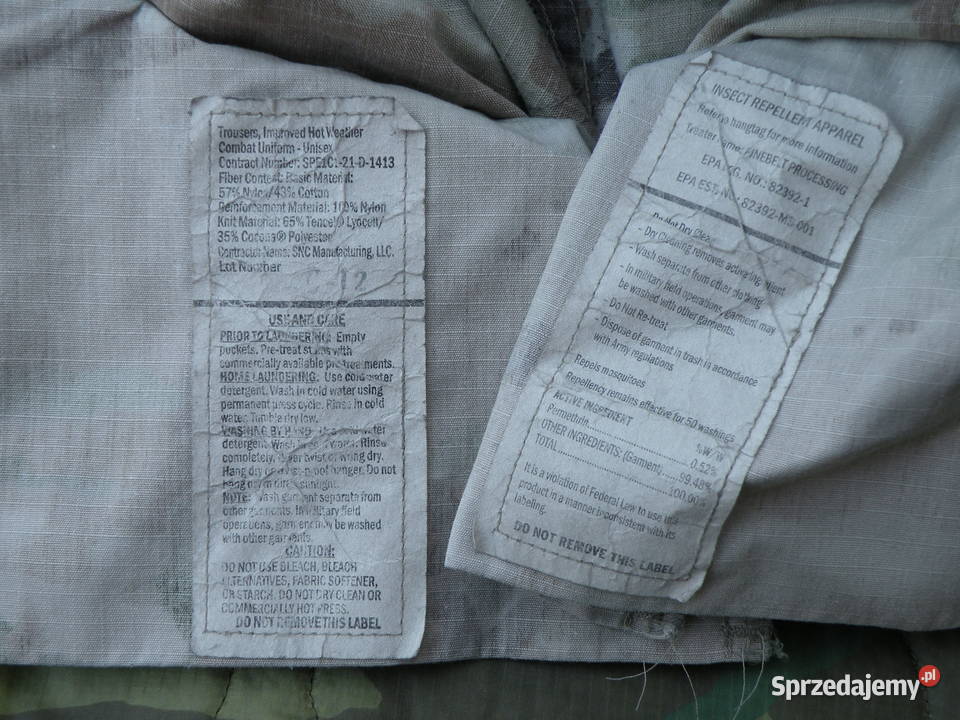 Trousers, Improved Hot Weather
Combat Uniform - Unisex
Contract Number: SPE1C1-21-D-1413
Fiber Content: Basic Material:
57% Nylon/43% Cotton
Reinforcement Material: 100% Nylon
Knit Material: 65% Tencel® Lyocell/
35% Cocona® Polyester
Contractor Name: SNC Manufacturing, LLC.
Lot Number
12
USE AND CARE
PRIOR TO LAUNDERING: Empty
pockets. Pre-treat stains with
commercially available pre-treatments.
HOME LAUNDERING: Use cold water
detergent. Wash in cold water using
permanent press cycle. Rinse in cold
water. Tumble dry low.
WASHING BY HAND: Use cold water
detergent. Wash in cold water. Rinse
completely. Never twist or wring dry.
Hang dry on rust-proof hanger. Do not
hang dry in direct sunlight.
NOTE: Wash garment separate from
other garments. In military field
operations, garment may be washed
with other garments.
CAUTION:
DO NOT USE BLEACH, BLEACH
ALTERNATIVES, FABRIC SOFTENER,
OR STARCH. DO NOT DRY CLEAN OR
COMMERCIALLY HOT PRESS.
DO NOT REMOVE THIS LABEL
INSECT REPELLENT APPAREL
Refer to hangtag for more information
Treater name: PINEBELT PROCESSING
EPA REG. NO.: 82392-1
EPA EST. NO.: 82392-MS-001
Do Not Dry Clean
- Dry Cleaning removes active ingredient
- Wash separate from other clothing
- In military field operations, garment may
be washed with other garments.
- Do Not Re-treat
- Dispose of garment in trash in accordance
with Army regulations
Repels mosquitoes
Repellency remains effective for 50 washings
ACTIVE INGREDIENT %W/W
Permethrin 0.52%
OTHER INGREDIENTS: (Garment) 99.48%
TOTAL 100.00%
It is a violation of Federal Law to use this
product in a manner inconsistent with its
labeling.
DO NOT REMOVE THIS LABEL
Sprzedajemy.pl